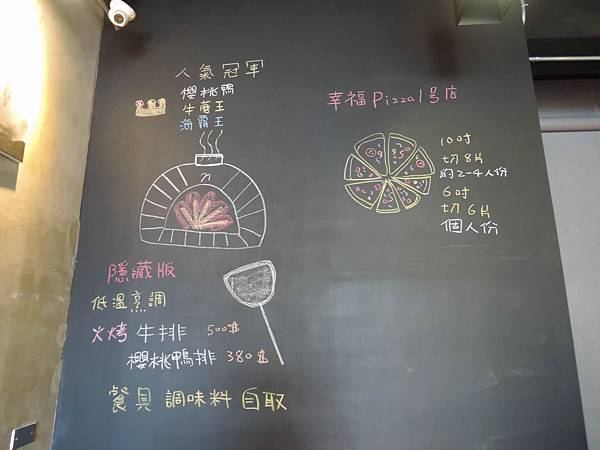 人氣冠軍
櫻桃鴨
牛蘑王
海霸王
隱藏版
低溫烹調
火烤 牛排 500
櫻桃鴨排 380
餐具 調味料 自取
幸福Pizza1号店
10吋
切8片
約2-4人份
6吋
切6片
個人份